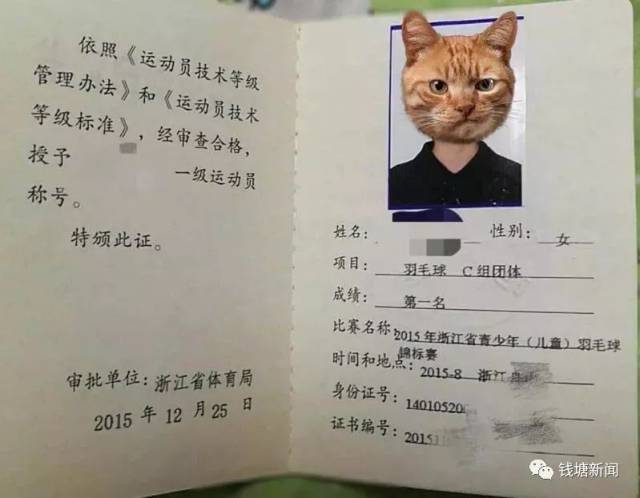 依照《运动员技术等级
管理办法》和《运动员技术
等级标准》，经审查合格，
授予 一级运动员
称号。
特颁此证。
审批单位：浙江省体育局
2015 年 12 月 25 日
姓名： 性别： 女
项目： 羽毛球 C 组团体
成绩： 第一名
比赛名称：2015 年浙江省青少年（儿童）羽毛球
锦标赛
时间和地点：2015-8 浙江
身份证号：14010520
证书编号：2015
钱塘新闻